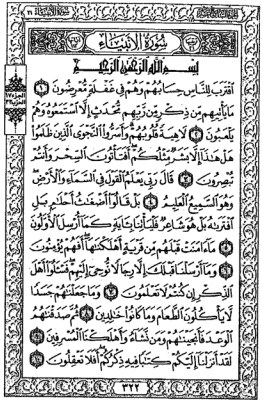 سُورَةُ الأَنبِيَاءِ
بِسْمِ اللَّهِ الرَّحْمَٰنِ الرَّحِيمِ
اقْتَرَبَ لِلنَّاسِ حِسَابُهُمْ وَهُمْ فِي غَفْلَةٍ مُّعْرِضُونَ ١
مَا يَأْتِيهِم مِّن ذِكْرٍ مِّن رَّبِّهِم مُّحْدَثٍ إِلَّا اسْتَمَعُوهُ وَهُمْ
يَلْعَبُونَ ٢ لَاهِيَةً قُلُوبُهُمْ وَأَسَرُّوا النَّجْوَى الَّذِينَ ظَلَمُوا
هَلْ هَٰذَا إِلَّا بَشَرٌ مِّثْلُكُمْ أَفَتَأْتُونَ السِّحْرَ وَأَنتُمْ
تُبْصِرُونَ ٣ قَالَ رَبِّي يَعْلَمُ الْقَوْلَ فِي السَّمَاءِ وَالْأَرْضِ
وَهُوَ السَّمِيعُ الْعَلِيمُ ٤ بَلْ قَالُوا أَضْغَاثُ أَحْلَامٍ بَلِ
افْتَرَاهُ بَلْ هُوَ شَاعِرٌ فَلْيَأْتِنَا بِآيَةٍ كَمَا أُرْسِلَ الْأَوَّلُونَ
٥ مَا آمَنَتْ قَبْلَهُم مِّن قَرْيَةٍ أَهْلَكْنَاهَا أَفَهُمْ يُؤْمِنُونَ
٦ وَمَا أَرْسَلْنَا قَبْلَكَ إِلَّا رِجَالًا نُّوحِي إِلَيْهِمْ فَاسْأَلُوا أَهْلَ
الذِّكْرِ إِن كُنتُمْ لَا تَعْلَمُونَ ٧ وَمَا جَعَلْنَاهُمْ جَسَدًا
لَّا يَأْكُلُونَ الطَّعَامَ وَمَا كَانُوا خَالِدِينَ ٨ ثُمَّ صَدَقْنَاهُمُ
الْوَعْدَ فَأَنجَيْنَاهُمْ وَمَن نَّشَاءُ وَأَهْلَكْنَا الْمُسْرِفِينَ ٩
لَقَدْ أَنزَلْنَا إِلَيْكُمْ كِتَابًا فِيهِ ذِكْرُكُمْ أَفَلَا تَعْقِلُونَ ١٠
٣٢٢